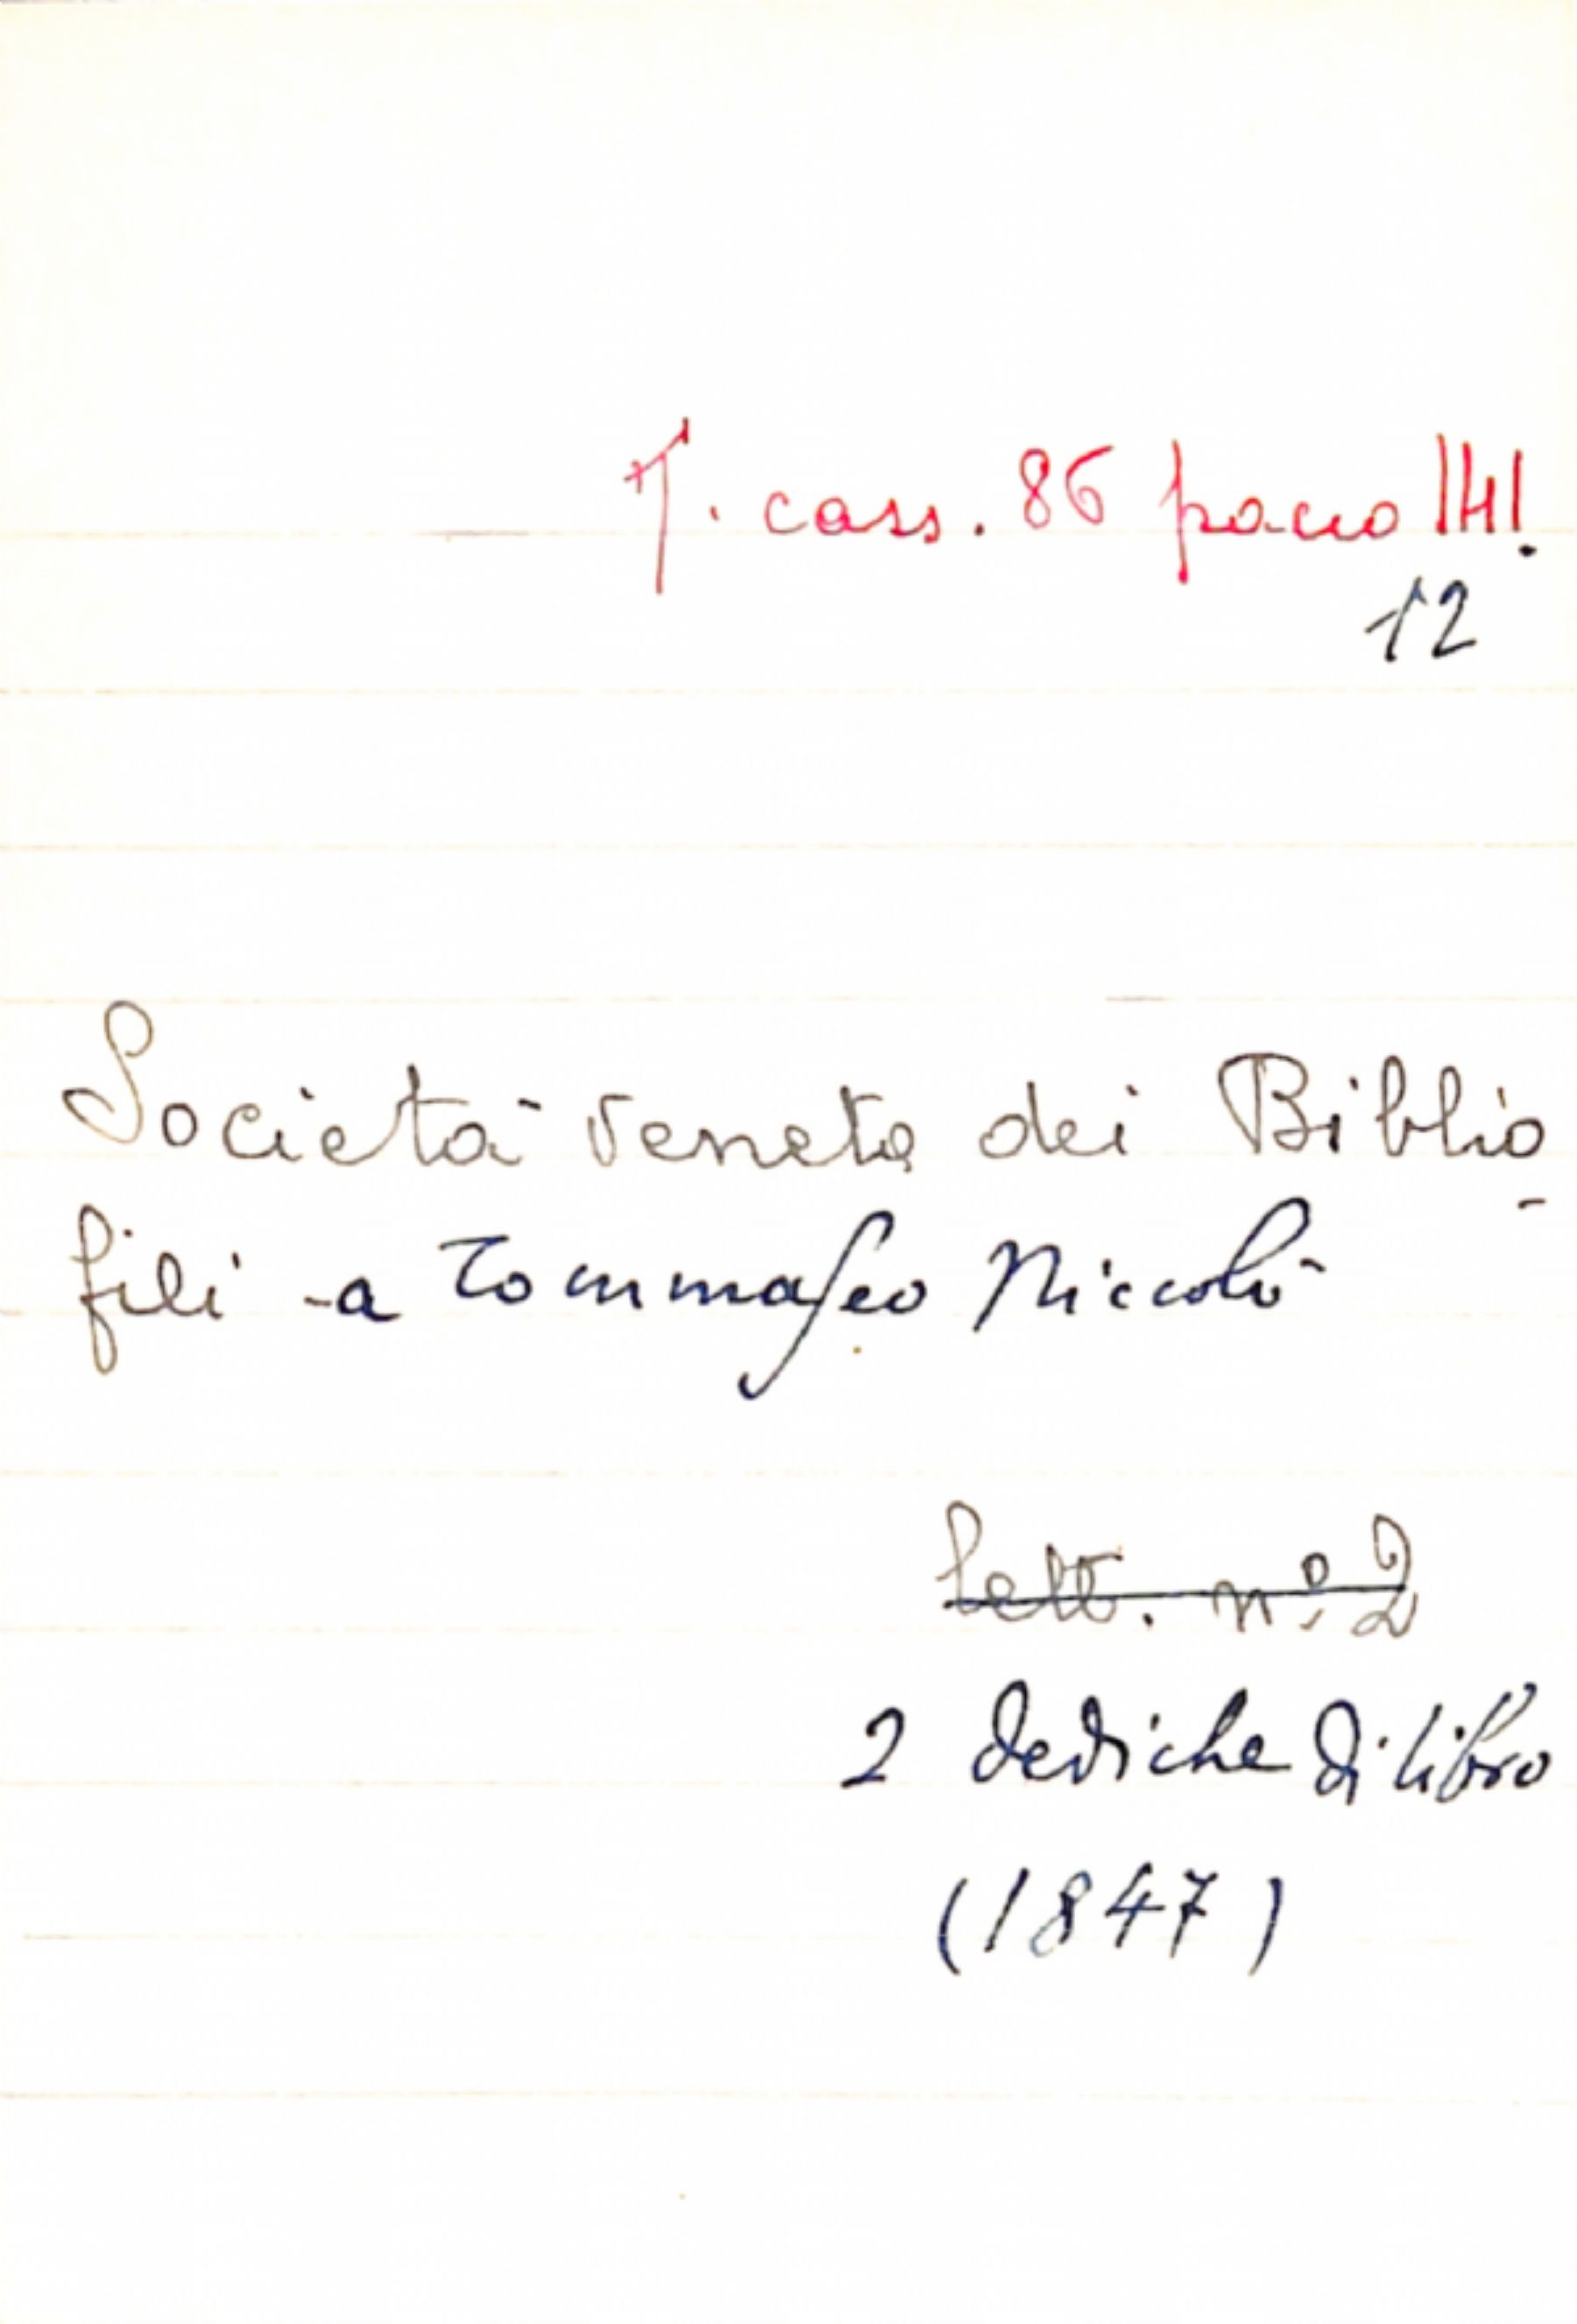 T. cass. 86 pacco 141.
12
Società veneta dei Biblio
-
fili - a Tommaseo Niccolò
Lett. n° 2
2 dediche di libro
(1847)